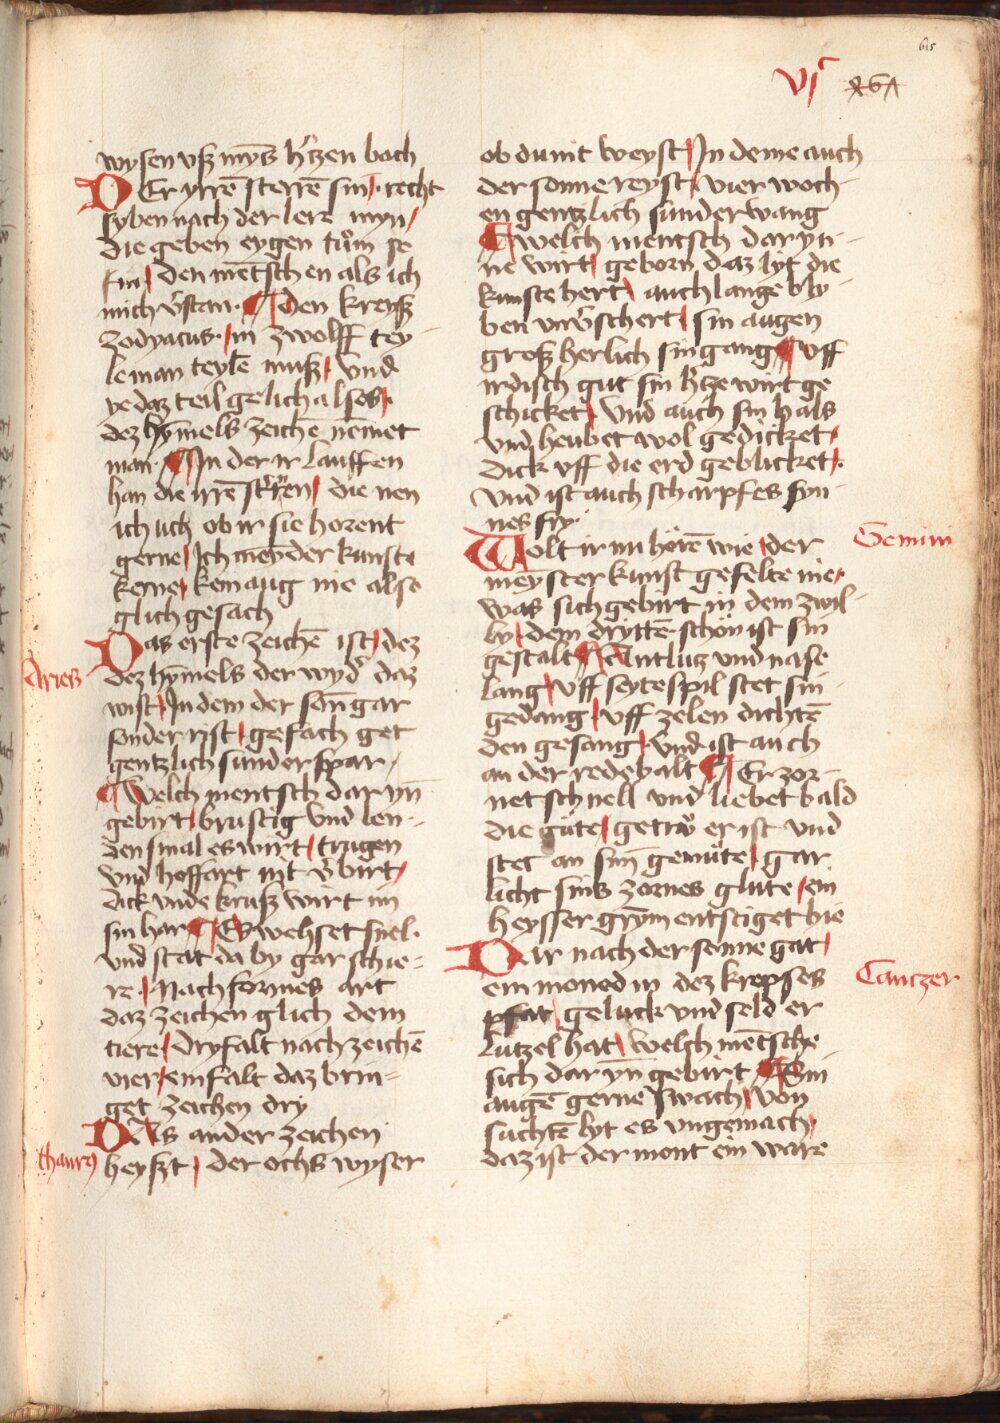 65
VIͬ
wysen vß myns hˀtzen bach
DEr yrrē sterrē sin / recht
syben nach der lere myn /
die geben eygen tům se
sin / den mētschen als ich
mich vˀstan · Den kreyß
Zodyacus · / in zwolff tey-
le man teylē muß / Vnd
ye daz teil gelich alsˀs /
dez hȳmels zeichē nēmet
man · In der ir lauffen
han die irrē sterrē / die nen
ich uch ob ir sie horent
gerne / Ich mey der kunste
kerne / kein aug nie also
glich gesach
Das erste zeichē ist / dez
Aries
dez hȳmels der wydˀ daz
wist / In dem der soñ gar
sonder rist / gesach get
gentzlich sunder spar /
Welch mentsch dar yñ
gebirt / brustig vnd len-
den smal es wirt / trugen
vnd hoffart nit vˀbirt /
dick vnde kruß wirt im
sin har Es wehset snel ·
vnd stat da by gar schie-
re · / Nach formes art
daz zeichen glich dem
tiere / dryfalt nach zeichē
vier / einfalt daz brin-
get zeichen dry
DAs ander zeichen
thaurꝯ
heyßt / der ochs wyser
ob du nit weyst / In deme auch
der sonne reyst / vier woch-
en gentzlich sunder wang
welch mentsch dar yn-
ne wirt / geborn daz lyt die
kunste hert / auch lange bly-
ben vnvˀschert / sin augen
groß herlich sin gang vff
irdisch gut sin hˀtze wirt ge
schicket / Vnd auch sin hals
vnd heubet wol gedicket /
Dick vff die erd geblicket /
vnd ist auch scharpfes syn-
nes fry ·
Wolt ir nu hörē wie / der
Gemini
meyster kunst gefelte nie /
was sich gebirt in dem zwil-
ly / dem drytten schön ist sin
gestalt / Antlutz vnd nase
lang / vff seytespil stet sin
gedang / vff zelen dichtē
den gesang / Vnd ist auch
an der rede balt Er zor-
net schnell vnd liebet bald
die gůte / getrw er ist vnd
stet an sim gemůte / gar
licht sins zornes glute / ein
heysser grȳm entstiget hie
Dar nach der sonne gat /
ein moned in dez krepses
Cantzer
pfat / geluck vnd seld er
lutzel hat / welch mētsche
sich dar yñ gebirt Sin
augē gerne swach / von
suchtē lyt es vngemach /
daz ist der mont ein ware